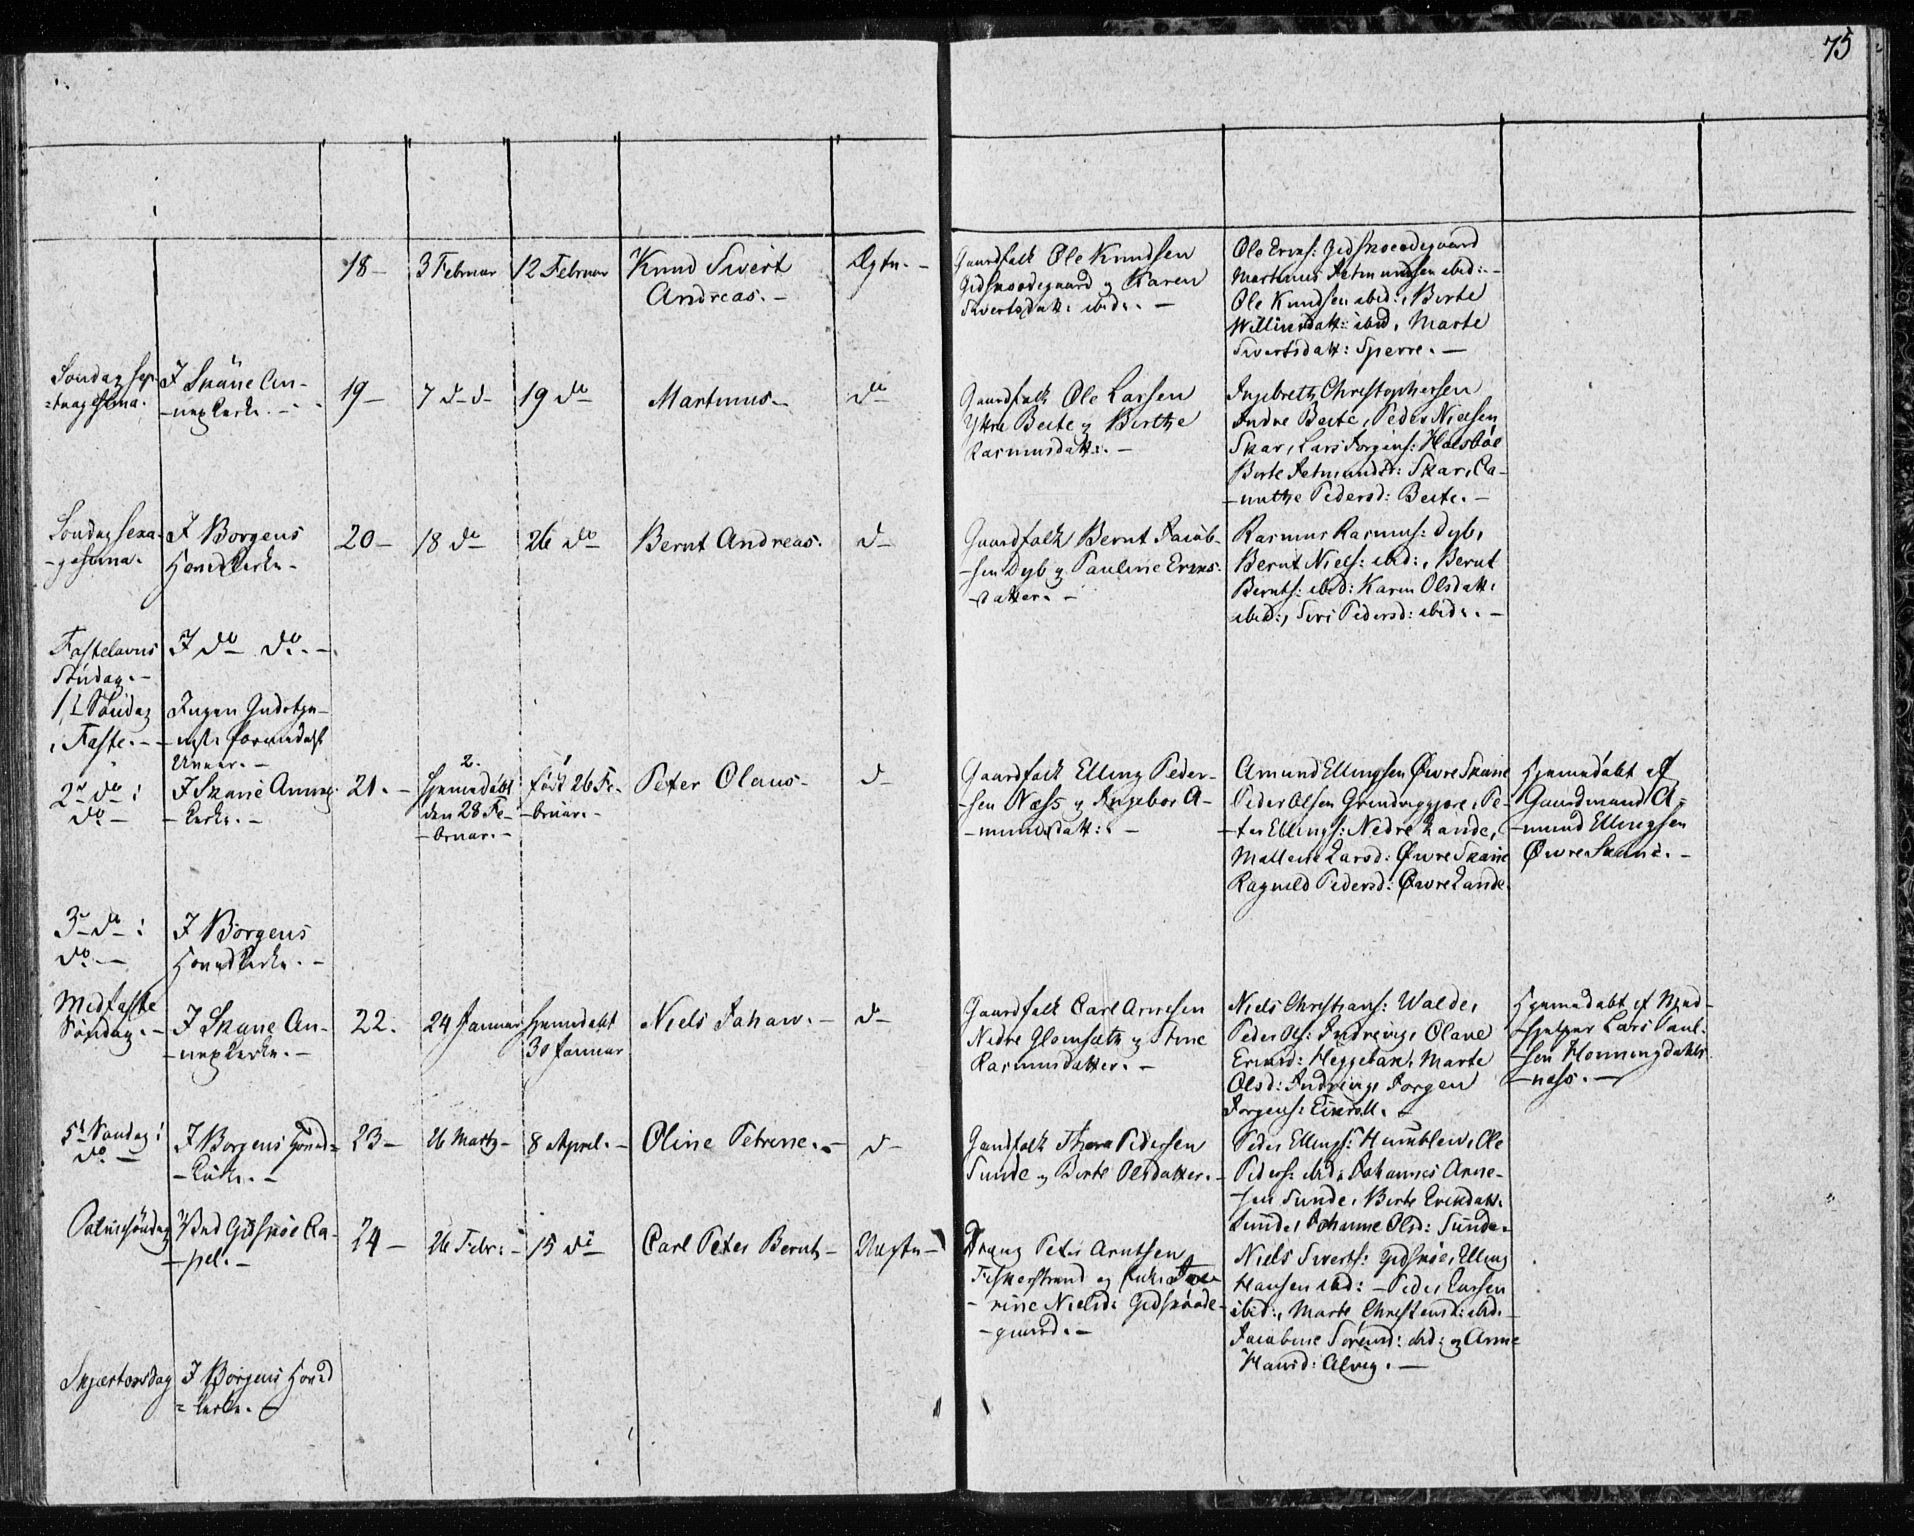 75
18 –
3 Februar
12 Februar
Knud Sivert
Andreas. –
Ægte. –
Gaardfolk Ole Knudsen
Gidskoødegaard og Karen
Sivertsdatt: ibid: –
Ole Erics: Gidskoeødegaard
Martinus Asmundsen ibid: –
Ole Knudsen ibid:, Berte
Willumsdatt: ibid, Marte
Sivertsdatt: Sperre. –
Søndag Sep-
=tuagesima.
I Skåne An-
-nexkirke. –
19 –
7 d– d–
19 do
Martinus –
do
Gaardfolk Ole Larsen
Yttre Beite og Birthe
Rasmusdatt: –
Ingebreth Christophersen
Indre Beite, Peder Nielsen
Skar, Lars Jørgens: Halsbøe
Berte Asmundsd: Skar, Ca-
-nuthe Pedersd: Beite. –
Søndag Sexa-
-gesima.
I Borgens
Hovedkirke –
20 –
18 do
26 do
Bernt Andreas.
d–
Gaardfolk Bernt Jacob-
-sen Dyb og Pauline Erics-
-datter. –
Rasmus Rasmus: Dyb,
Bernt Niels: ibid:, Bernt
Bernts: ibid: Karen Olsdatt:
ibid:, Siri Pedersd: ibid:. –
Fastelavns
Søndag. –
I do do. –
1ste Søndag
i Faste. –
Ingen Gudstje-
-neste formedelst
Uveir. –
2den do i
do –
I Skane Annex-
-kirke. –
21. –
2.
Hjemmedøbt
den 28 Fe-
-bruar. –
1
født 26 Fe-
-bruar. –
Peter Olaus –
d–
Gaardfolk Elling Peder-
-sen Næss og Ingebor A-
-mundsdatt: –
Amund Ellingsen Øvre Skane
Peder Olsen, Pe-
-ter Ellings: Nedre Lande,
Mallene Larsd: Øvre Skane
Ragnild Pedersd: Øvre Lande.
Hjemmedøbt af
Gaardmand A-
-mund Ellingsen
Øvre Skane. –
3die do i
do –
I Borgens
Hovedkirke. –
Midfaste
Søndag. –
I Skane An-
-nexkirke. –
22.
24 Januar
Hjemmedøbt
30 Januar
Niels Johan. –
d–
Gaardfolk Carl Arnesen
Nedre Glomsæth og Stine
Rasmusdatter. –
Niels Christians: Walde,
Peder Ols: Indrevig, Olave
Ericsd: Heggebak, Marte
Olsd: Indrevig, Jørgen
Jørgens: –
Hjemmedøbt af Med-
-hjelper Lars Paul-
-sen Honningdals-
-næss. –
5te Søndag i
do –
I Borgens Hoved-
-kirke. –
23 –
26 Marts –
8 April. –
Oline Petrine. –
d–
Gaardfolk Thore Pedersen
Sunde og Berte Olsdatter. –
Peder Ellings: Humblen, Ole
Peders: ibid, Johannes Arne-
-sen Sunde, Berte Ericsdatt:
Sunde, Johanne Olsd: Sunde
Palmesøndag
Ved Gidskøe Ca-
-pel. –
24 –
26 Febr: –
15 do –
Carl Peter Bernt –
Uægte –
Dreng Peter Arntsen
Fiskerstrand og Pike
-rine Nielsd: Gidskøøde-
-gaard. –
Niels Siverts: Gidskøe, Elling
Hansen ibid: – Peder Larsen
ibid:, Marte Christensd: ibid. –
Jacobine Sørensd: ibid: og Anne
Hansd: Alvig. –
Skjærtorsdag
I Borgens Hoved
=kirke. –